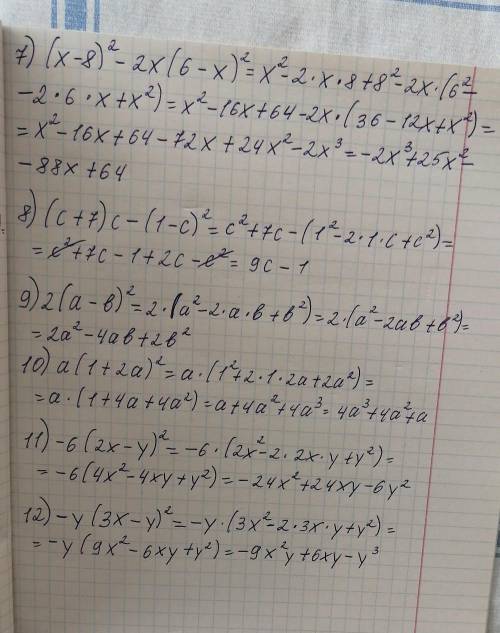 7) (x-8)² - 2x(6-x)² = x² - 2·x·8 + 8² - 2x·(6² -
- 2·6·x + x²) = x² - 16x + 64 - 2x·(36 - 12x + x²) =
= x² - 16x + 64 - 72x + 24x² - 2x³ = -2x³ + 25x² -
- 88x + 64
8) (c+7)c - (1-c)² = c² + 7c - (1² - 2·1·c + c²) =
= c² + 7c - 1 + 2c - c² = 9c - 1
9) 2(a-b)² = 2·(a² - 2·a·b + b²) = 2·(a² - 2ab + b²) =
= 2a² - 4ab + 2b²
10) a(1+2a)² = a·(1² + 2·1·2a + 2a²) =
= a·(1 + 4a + 4a²) = a + 4a² + 4a³ = 4a³ + 4a² + a
11) -6(2x-y)² = -6·(2x² - 2·2x·y + y²) =
= -6(4x² - 4xy + y²) = -24x² + 24xy - 6y²
12) -y(3x-y)² = -y·(3x² - 2·3x·y + y²) =
= -y(9x² - 6xy + y²) = -9x²y + 6xy - y³